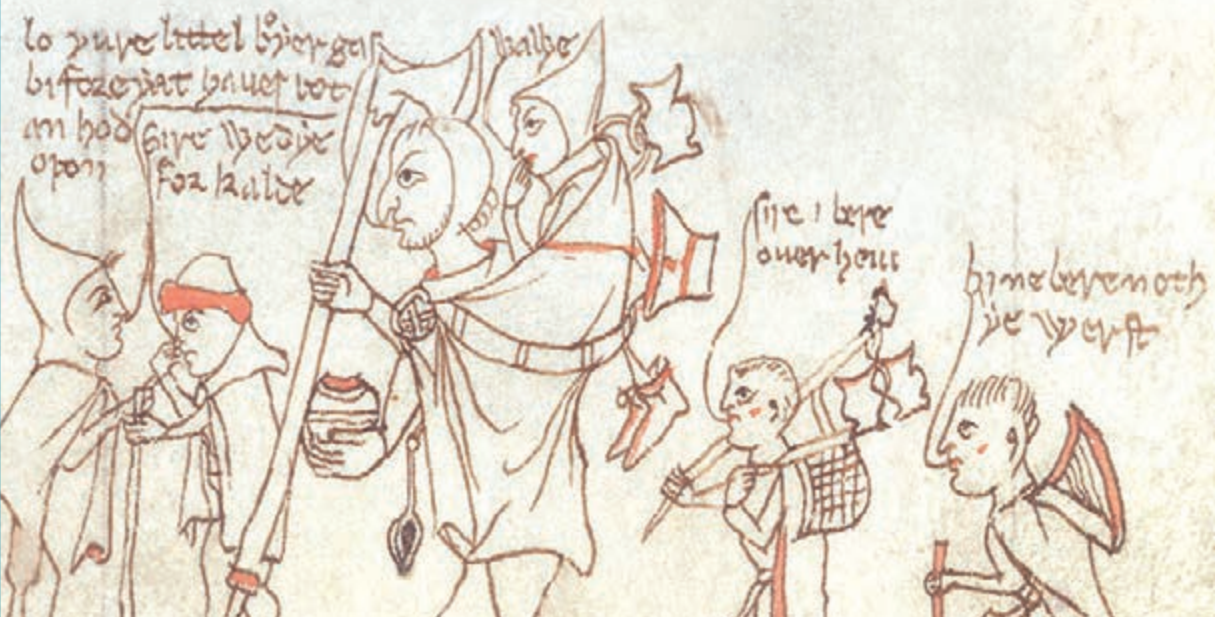 lo yure littel broyer gas
bifore yat haues bot
an hod
opon
sire we dye
for kalde
sire i bere
ouer heui
hi ne bere noth
ye werst